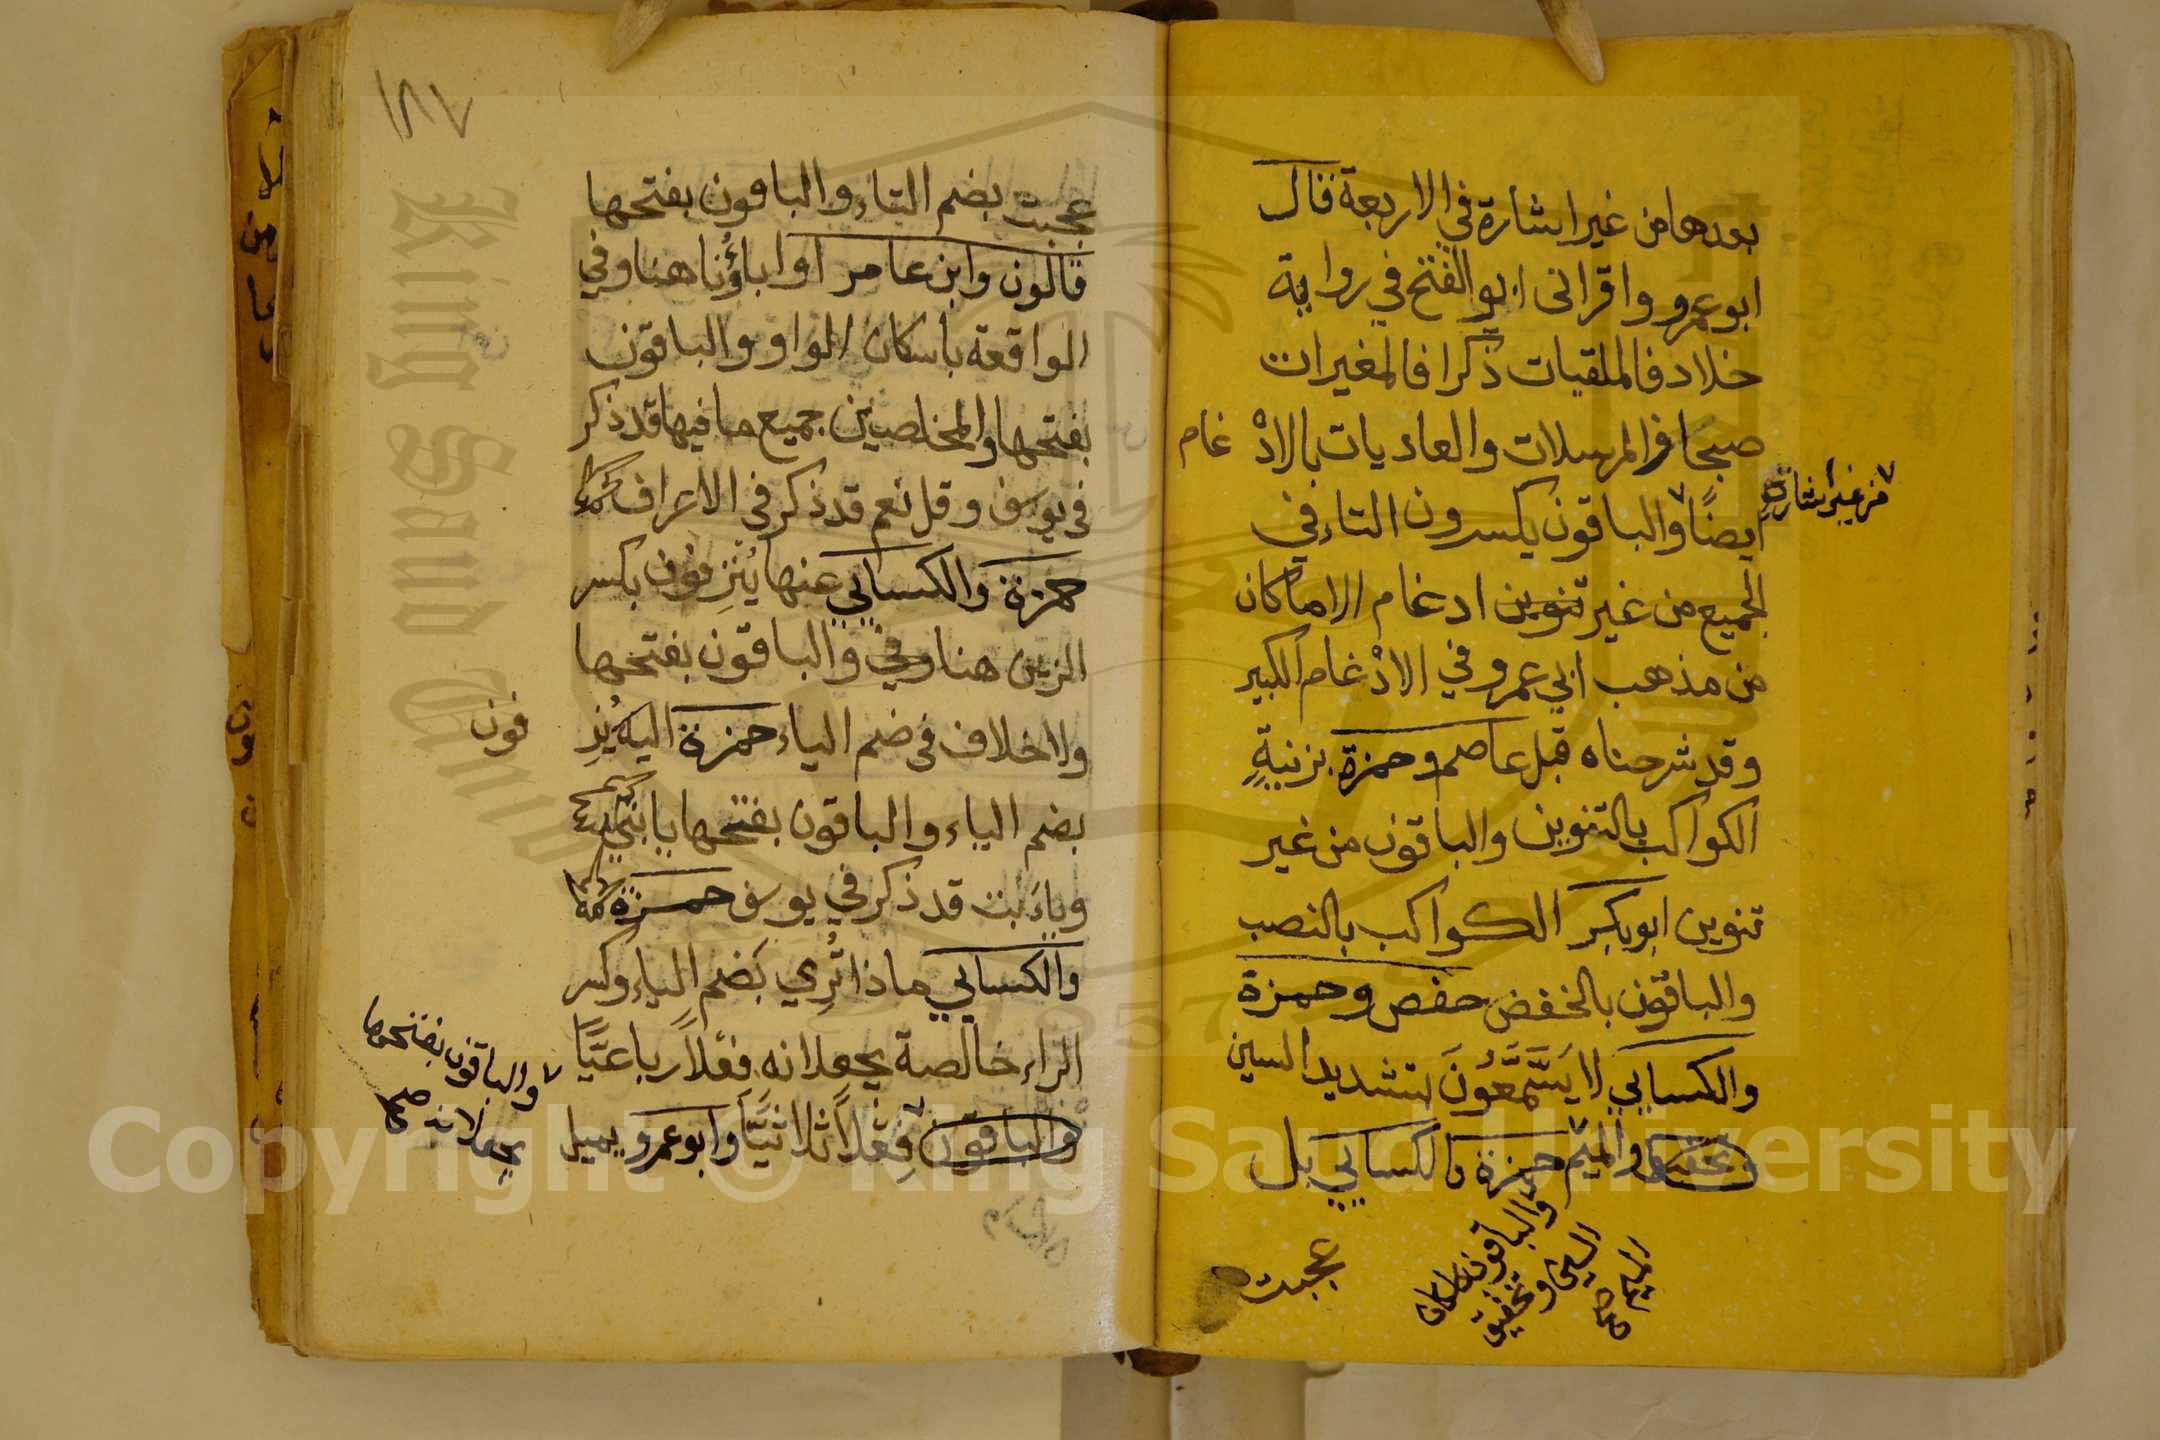 بعدها من غير اشارة في الاربعة قال
ابو عمرو واقرانى ابو الفتح في رواية
خلاد فالملقيات ذكرا فالمغيرات
صبحا في المرسلات والعاديات بالادغام
ايضًا والباقون يكسرون التاء في
من غير اشارة
الجميع من غير تنوين ادغام الا ما كان
من مذهب ابي عمرو في الادغام الكبير
وقد شرحناه قبل عاصم وحمزة بزينةٍ
الكواكب بالتنوين والباقون من غير
تنوين ابو بكر الكواكب بالنصب
والباقون بالخفض حفص وحمزة
والكسايي لا يَسَّمَّعُونَ بتشديد السين
والميم حمزة والكسايي بل
والباقون باسكان
السين وتخفيف
الميم صح
عجبت
١٨٧
عجبت بضم التاء والباقون بفتحها
قالون وابن عامر اوا باؤُنا هنا وفي
الواقعة باسكان الواو والباقون
بفتحها والمخلصين جميع ما فيها قد ذكر
في يوسف وقل نعم قد ذكر في الاعراف
حمزة والكسايي عنها يُنزِفُون بكسر
الزين هنا وفي والباقون بفتحها
ولا خلاف فى ضم الياء حمزة اليه يُزِفون
بضم الياء والباقون بفتحها يا بني
وياءَبت قد ذكر في يوسف حمزة
والكسايي ماذا تُرِي بضم الياء وكسر
الراء خالصة يجعلانه فعْلاً رباعيًّا
والباقون فعْلاً ثلاثيًّا وابو عمرو يميل
والباقون بفتحها
يجعلانه صح
Copyright © King Saud University
King Saud University
1957